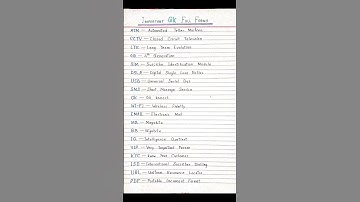 Important GK Full Forms
ATM – Automated Teller Machine
CCTV – Closed Circuit Television
LTE – Long Term Evolution
4G – 4th Generation
SIM – Suscribe Identification Module
DSLR – Digital Single Lens Reflex
USB – Universal Serial Bus
SMS – Short Message Service
OK – Oll korrect
WI-FI – Wireless Fidelity
EMAIL – Electronic Mail
MB – Megabite
GB – Gigabite
IQ – Intelligence Quotient
VIP – Very Important Person
KYC – Know Your Customer
ISD – International Suscriber Dialing
URL – Uniform Resource Locator
PDF – Portable Document Format